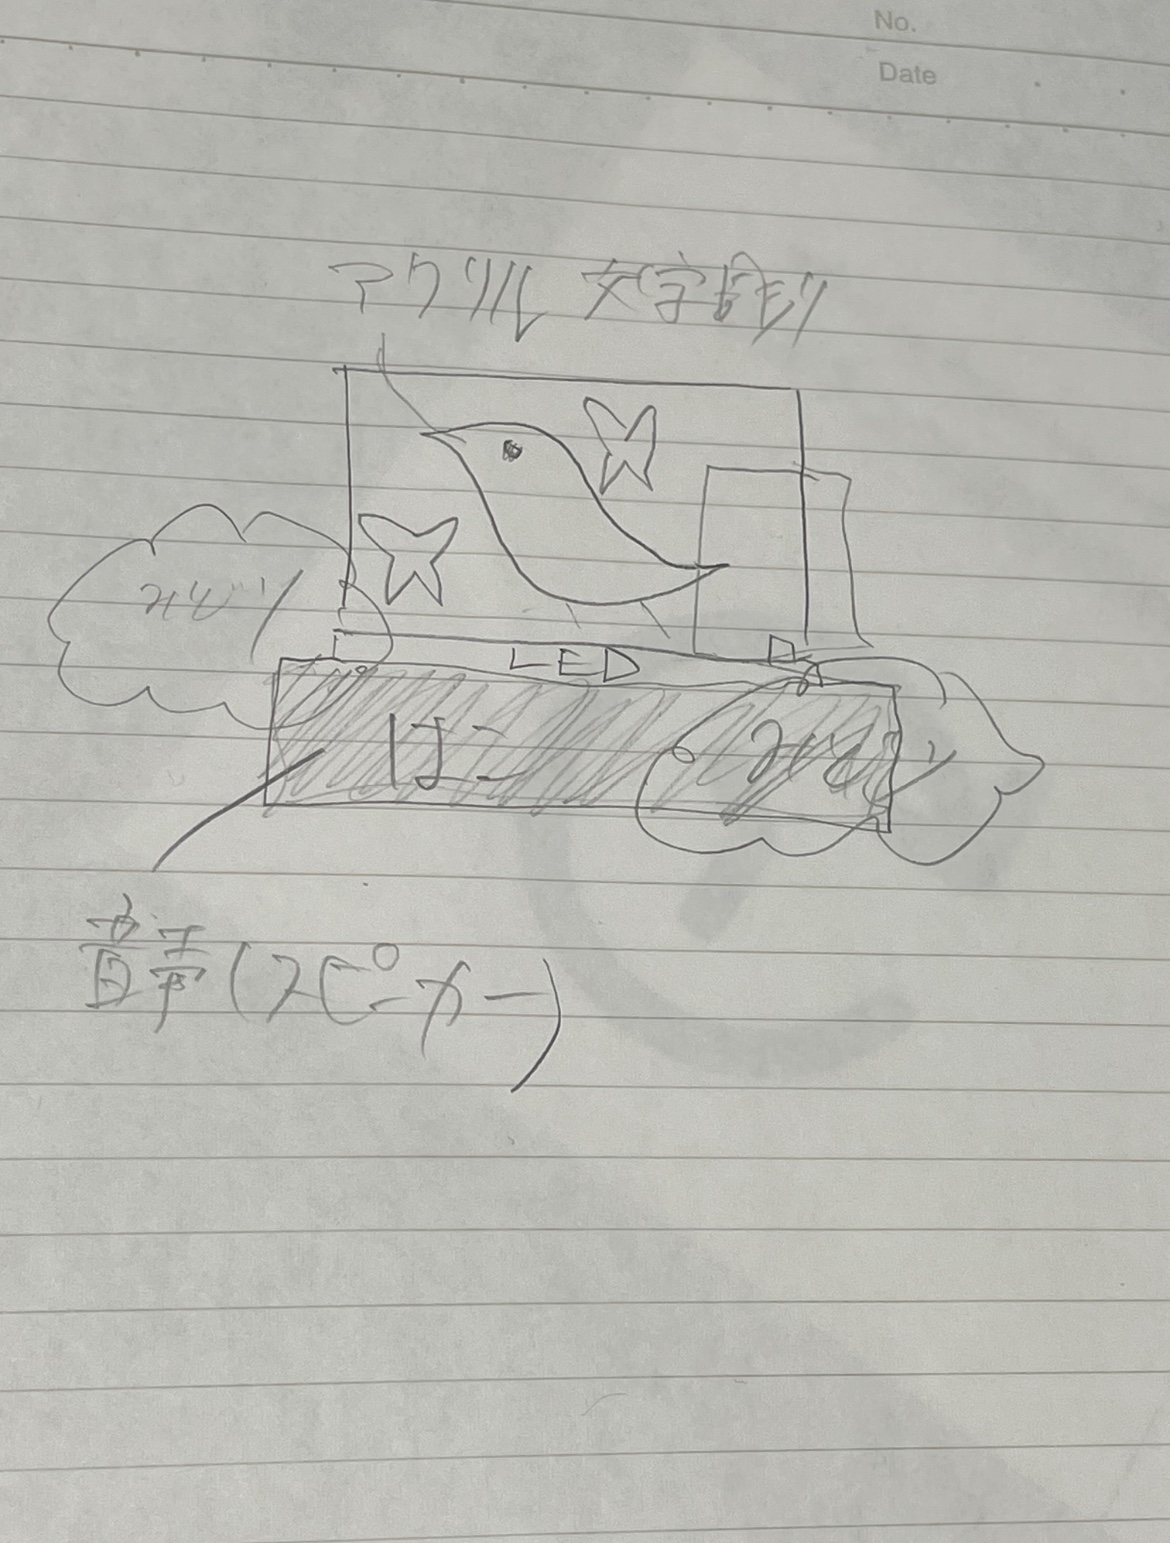 No.
Date
アクリル 文字彫り
LED
はこ
音声(スピーカー)